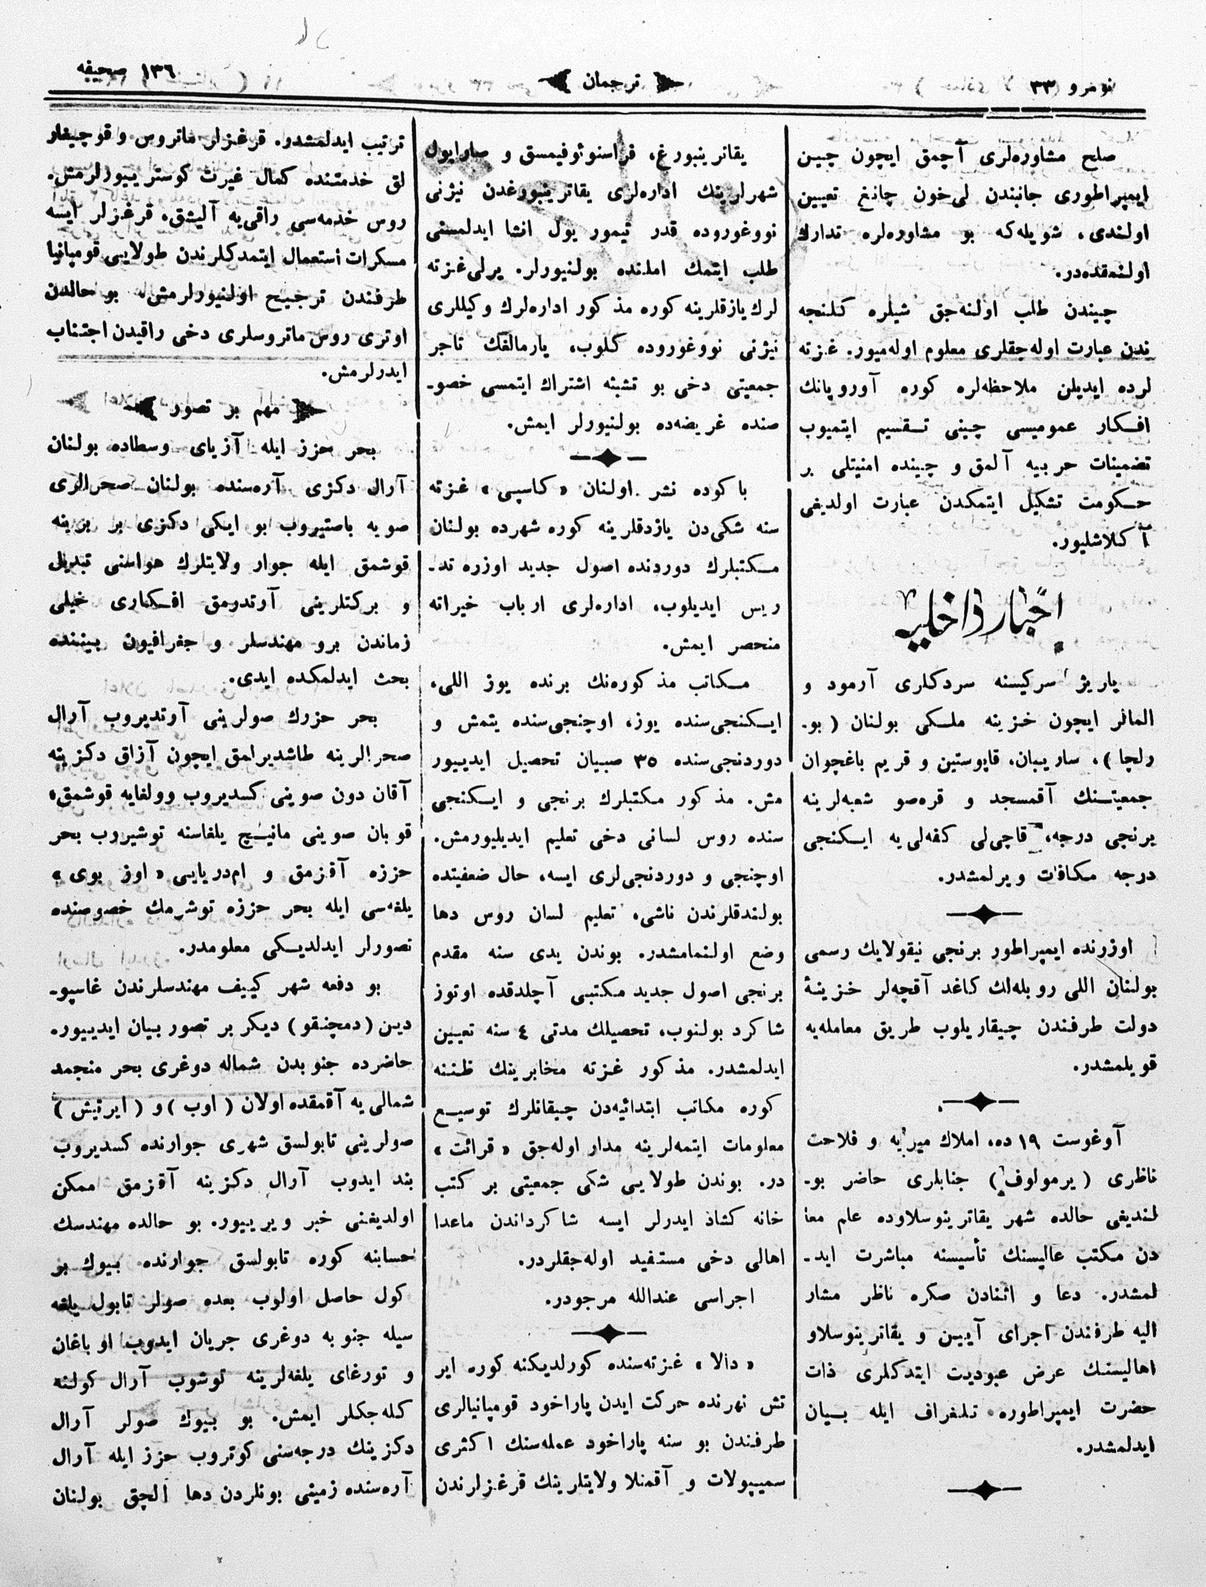 نومرو ۳۳
ترجمان
۱۳٦ صحیفه
صلح مشاوره‌لری آچمق ایچون چین
ایمپراطوری جانبندن لی‌خون چانغ تعیین
اولندی، شویله‌که بو مشاوره‌لره تدارك
اولنمقده‌در.
چیندن طلب اولنه‌جق شیلره کلنجه
ندن عبارت اوله‌جقلری معلوم اوله‌میور. غزته
لرده ایدیلن ملاحظه‌لره کوره آوروپانك
افکار عمومیسی چینی تقسیم ایتمیوب
تضمینات حربیه آلمق و چینده امنیتلی بر
حکومت تشکیل ایتمکدن عبارت اولدیغی
آکلاشلیور.
اخبار داخلیه
پاریژ سرکیسنه سردکلری آرمود و
المالر ایچون خزینه ملکی بولنان (بو-
رلچا)، ساریبان، قاپوستین و قریم باغچوان
جمعیتنك آقمسجد و قره‌صو شعبه‌لرینه
برنجی درجه، قاچی‌لی کفه‌لی‌یه ایکنجی
درجه مکافات ویرلمشدر.
اوزرنده ایمپراطور برنجی نیقولایك رسمی
بولنان اللی روبله‌لك کاغد آقچه‌لر خزینهٔ
دولت طرفندن چیقاریلوب طریق معامله‌یه
قویلمشدر.
آوغوست ۱۹ ده، املاك میریه و فلاحت
ناظری (یرمولوف) جنابلری حاضر بو-
لندیغی حالده شهر یقاترینوسلاوده عالم معا
دن مکتب عالیسنك تأسیسنه مباشرت اید-
لمشدر. دعا و اثنادن صکره ناظر مشار
الیه طرفندن اجرای آیین و یقاترینوسلاو
اهالیسنك عرض عبودیت ایتدکلری ذات
حضرت ایمپراطوره تلغراف ایله بیان
ایدلمشدر.
یقاترینبورغ، قراسنوئوفیمسق و صاراپول
شهرلرینك اداره‌لری یقاترینبورغدن نیژنی
نووغوروده قدر تیمور یول انشا ایدلمسنی
طلب ایتمك املنده بولنیورلر. یرلی‌غزته
لرك‌یازقلرینه کوره مذکور اداره‌لرك وکیللری
نیژنی نووغوروده کلوب، یارمالقك تاجر
جمعیتی دخی بو تشبثه اشتراك ایتمسی خصو-
صنده غریضه‌ده بولنیورلر ایمش.
باکوده نشر اولنان «کاسپی» غزته
سنه شکی‌دن یازدقلرینه کوره شهرده بولنان
مکتبلرك دوردنده اصول جدید اوزره تد-
ریس ایدیلوب، اداره‌لری ارباب خیراته
منحصر ایمش.
مکاتب مذکوره‌نك برنده یوز اللی،
ایکنجی‌سنده یوز، اوچنجی‌سنده یتمش و
دوردنجی‌سنده ۳٥ صبیان تحصیل ایدییور
مش. مذکور مکتبلرك برنجی و ایکنجی
سنده روس لسانی دخی تعلیم ایدیلیورمش.
اوچنجی و دوردنجی‌لری ایسه، حال ضعفیتده
بولندقلرندن ناشی، تعلیم لسان روس دها
وضع اولنمامشدر. بوندن یدی سنه مقدم
برنجی اصول جدید مکتبی آچلدقده اوتوز
شاکرد بولنوب، تحصیلك مدتی ٤ سنه تعیین
ایدلمشدر. مذکور غزته مخابرینك ظننه
کوره مکاتب ابتدائیه‌دن چیقانلرك توسیع
معلومات ایتمه‌لرینه مدار اوله‌جق «قرائت»
در. بوندن طولایی شکی جمعیتی بر کتب
خانه کشاد ایدرلر ایسه شاکرداندن ماعدا
اهالی دخی مستفید اوله‌جقلردر.
اجراسی عندالله مرجودر.
«دالا» غزته‌سنده کورلدیکنه کوره ایر
تش نهرنده حرکت ایدن پاراخود قومپانیالری
طرفندن بو سنه پاراخود عمله‌سنك اکثری
سمیپولات و آقمنلا ولایتلرینك قرغزلرندن
ترتیب ایدلمشدو. قرغزلر ماتروس و قوچیغار
لق خدمتنده کمال غیرت کوستریییورلرمش.
روس خدمه‌سی راقی‌یه آلیشق، قرغزلر ایسه
مسکرات استعمال ایتمدکلرندن طولایی قومپانیا
طرفندن ترجیح اولنیورلرمش. بو حالدن
اوتری روس ماتروسلری دخی راقیدن اجتناب
ایدرلرمش.
مهم بر تصور
بحر حزز ایله آزیای وسطاده بولنان
آرال دکزی آره‌سنده بولنان صحرالری
صویه باستیروب بو ایکی دکزی بر برینه
قوشمق ایله جوار ولایتلرك هواسنی تبدیل
و برکتلرینی آرتدرمق افکاری خیلی
زماندن برو مهندسلر و جغرافیون بیننده
بحث ایدلمکده ایدی.
بحر حزرك صولرینی آرتدیروب آرال
صحرالرینه طاشدیرلمق ایچون آزاق دکزینه
آقان دون صوینی کسدیروب وولغایه قوشمق،
قوبان صوینی مانیچ یلغاسنه توشیروب بحر
حززه آقزمق و ام‌دریایی «اوز بوی»
یلغه‌سی ایله بحر حززه توشرمك خصوصنده
تصورلر ایدلدیکی معلومدر.
بو دفعه شهر کییف مهندسلرندن غاسپو-
دین (دمچنقو) دیکر بر تصور بیان ایدییور.
حاضرده جنوبدن شماله دوغری بحر منجمد
شمالی‌یه آقمقده اولان (اوب) و (ایرتیش)
صولرینی تابولسق شهری جوارنده کسدیروب
بند ایدوب آرال دکزینه آقزمق ممکن
اولدیغنی خبر ویرییور. بو حالده مهندسك
حسابنه کوره تابولسق جوارنده بیوك بر
کول حاصل اولوب بعده صولر تابول یلغه
سیله جنوبه دوغری جریان ایدوب اوباغان
و تورغای یلغه‌لرینه توشوب آرال کولنه
کله‌جکلر ایمش. بو بیوك صولر آرال
دکزینك درجه‌سنی کوتروب حزز ایله آرال
آره‌سنده زمینی بونلردن دها الچق بولنان